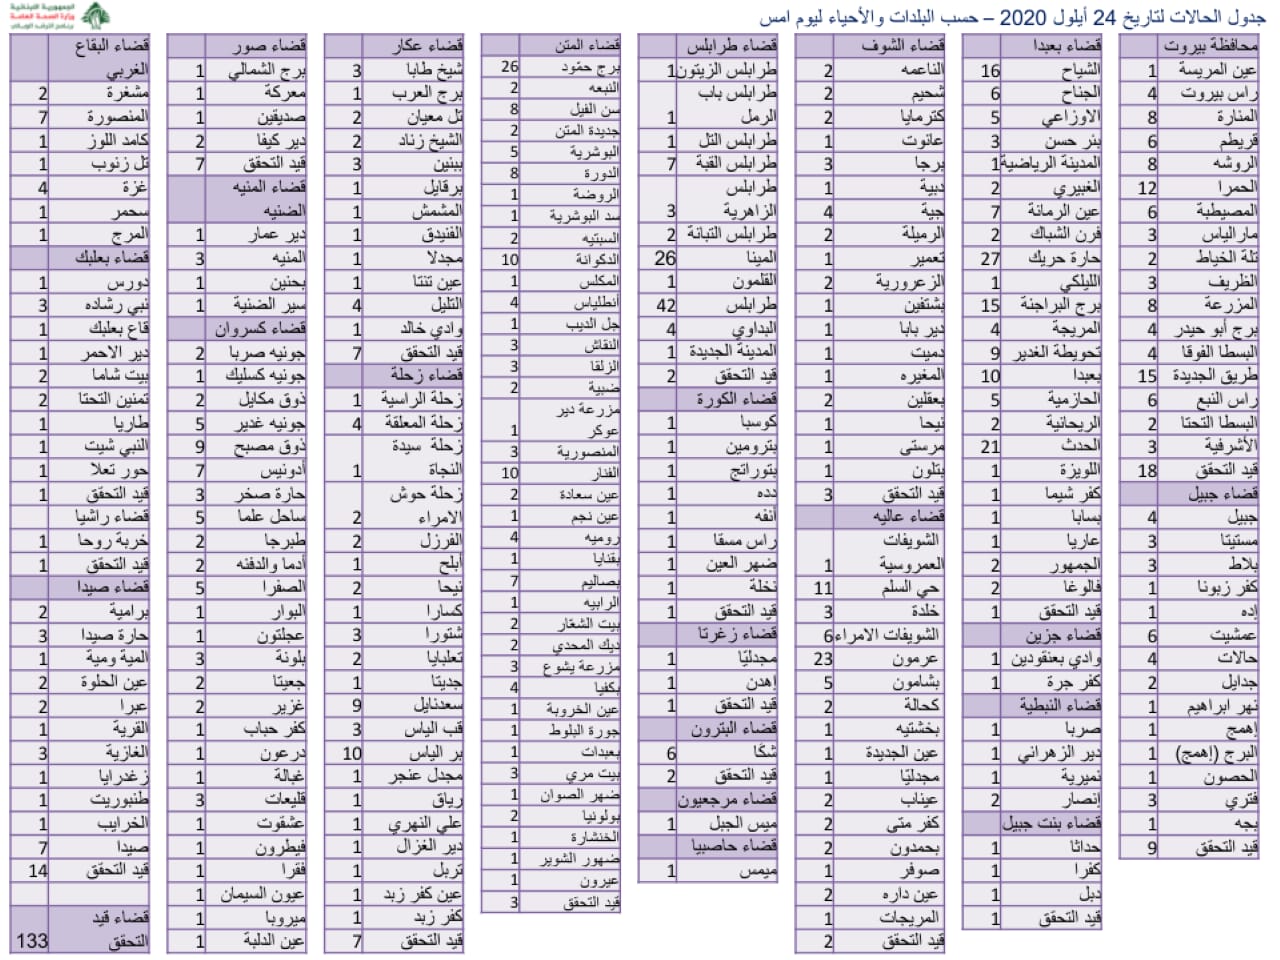 جدول الحالات لتاريخ 24 أيلول 2020 – حسب البلدات والأحياء ليوم امس
الجمهورية اللبنانية
وزارة الصحة العامة
محافظة بيروت
عين المريسة 1
راس بيروت 4
المنارة 8
قريطم 6
الروشه 8
الحمرا 12
المصيطبة 6
مار الياس 3
تلة الخياط 2
الظريف 3
المزرعة 8
برج أبو حيدر 4
البسطا الفوقا 4
طريق الجديدة 15
راس النبع 6
البسطا التحتا 2
الأشرفية 3
قيد التحقق 18
قضاء جبيل
جبيل 4
مستيتا 3
بلاط 3
كفر زبونا 1
إده 1
عمشيت 6
حالات 4
جدايل 2
نهر ابراهيم 1
إهمج 1
البرج (إهمج) 1
الحصون 1
فتري 3
بجه 1
قيد التحقق 9
قضاء بعبدا
الشياح 16
الجناح 6
الاوزاعي 5
بئر حسن 3
المدينة الرياضية 1
الغبيري 2
عين الرمانة 7
فرن الشباك 2
حارة حريك 27
الليلكي 1
برج البراجنة 15
المريجة 4
تحويطة الغدير 9
بعبدا 10
الحازمية 5
الريحانية 2
الحدث 21
اللويزة 1
كفر شيما 1
بسابا 1
عاريا 1
الجمهور 2
فالوغا 2
قيد التحقق 1
قضاء جزين
وادي بعنقودين 1
كفر جرة 1
قضاء النبطية
صربا 1
دير الزهراني 1
نميرية 1
إنصار 2
قضاء بنت جبيل
حداثا 1
كفرا 1
دبل 1
قيد التحقق 1
قضاء الشوف
الناعمه 2
شحيم 2
كترمايا 2
عانوت 1
برجا 3
دبية 1
جية 4
الرميلة 2
تعمير 1
الزعرورية 2
بشتفين 1
دير بابا 1
دميت 1
المغيره 1
بعقلين 2
نيحا 1
مرستى 1
بتلون 1
قيد التحقق 3
قضاء عاليه
الشويفات
العمروسية 1
حي السلم 11
خلدة 3
الشويفات الامراء 6
عرمون 23
بشامون 5
كحالة 2
بخشتيه 1
عين الجديدة 1
مجدليا 1
عيناب 2
كفر متى 2
بحمدون 2
صوفر 1
عين داره 2
المريجات 1
قيد التحقق 2
قضاء طرابلس
طرابلس الزيتون 1
طرابلس باب
الرمل 1
طرابلس التل 1
طرابلس القبة 7
طرابلس
الزاهرية 3
طرابلس التبانة 2
المينا 26
القلمون 1
طرابلس 42
البداوي 4
المدينة الجديدة 1
قيد التحقق 2
قضاء الكورة
كوسبا 1
بترومين 1
بتوراتج 1
دده 1
أنفه 1
راس مسقا 1
ضهر العين 1
نخلة 1
قيد التحقق 1
قضاء زغرتا
مجدليّا 1
إهدن 1
قيد التحقق 1
قضاء البترون
شكّا 6
قيد التحقق 2
قضاء مرجعيون
ميس الجبل 1
قضاء حاصبيا
ميمس 1
قضاء المتن
برج حمّود 26
النبعه 2
سن الفيل 8
جديدة المتن 2
البوشرية 5
الدورة 8
الروضة 1
سد البوشرية 1
السبتيه 2
الدكوانة 10
المكلس 1
أنطلياس 4
جل الديب 1
النقاش 3
الزلقا 3
ضبية 2
مزرعة دير
عوكر 1
المنصورية 3
الفنار 10
عين سعادة 2
عين نجم 1
روميه 4
بقنايا 1
بصاليم 7
الرابيه 1
بيت الشعّار 2
ديك المحدي 2
مزرعة يشوع 3
بكفيا 4
عين الخروبة 1
جورة البلوط 1
بعبدات 1
بيت مري 3
ضهر الصوان 1
بولونيا 2
الخنشارة 1
ضهور الشوير 1
عيرون 1
قيد التحقق 3
قضاء عكار
شيخ طابا 3
برج العرب 1
تل معيان 2
الشيخ زناد 2
ببنين 3
برقايل 1
المشمش 1
الفنيدق 1
مجدلا 1
عين تنتا 1
التليل 4
وادي خالد 1
قيد التحقق 7
قضاء زحلة
زحلة الراسية 1
زحلة المعلقة 4
زحلة سيدة
النجاة 1
زحلة حوش
الامراء 2
الفرزل 2
أبلح 1
نيحا 2
كسارا 1
شتورا 3
تعلبايا 2
جديتا 1
سعدنايل 9
قب الياس 3
بر الياس 10
مجدل عنجر 1
رياق 1
علي النهري 1
دير الغزال 1
تربل 1
عين كفر زبد 1
كفر زبد 1
قيد التحقق 7
قضاء صور
برج الشمالي 1
معركة 1
صديقين 1
دير كيفا 2
قيد التحقق 7
قضاء المنيه
الضنيه
دير عمار 1
المنيه 3
بحنين 1
سير الضنية 1
قضاء كسروان
جونيه صربا 2
جونيه كسليك 1
ذوق مكايل 2
جونيه غدير 5
ذوق مصبح 9
أدونيس 7
حارة صخر 3
ساحل علما 5
طبرجا 2
أدما والدفنه 2
الصفرا 5
البوار 1
عجلتون 1
بلونة 3
جعيتا 2
غزير 2
كفر حباب 1
درعون 1
غبالة 1
قليعات 3
عشقوت 1
فيطرون 1
فقرا 1
عيون السيمان 1
ميروبا 1
عين الدلبة 1
قضاء البقاع
الغربي
مشغرة 2
المنصورة 7
كامد اللوز 1
تل زنوب 1
غزة 4
سحمر 1
المرج 1
قضاء بعلبك
دورس 1
نبي رشاده 3
قاع بعلبك 1
دير الاحمر 1
بيت شاما 2
تمنين التحتا 2
طاريا 1
النبي شيت 1
حور تعلا 1
قيد التحقق 1
قضاء راشيا
خربة روحا 1
قيد التحقق 1
قضاء صيدا
برامية 2
حارة صيدا 3
المية ومية 1
عين الحلوة 2
عبرا 2
القرية 1
الغازية 3
زغدرايا 1
طنبوريت 1
الخرايب 1
صيدا 7
قيد التحقق 14
قضاء قيد
التحقق 133